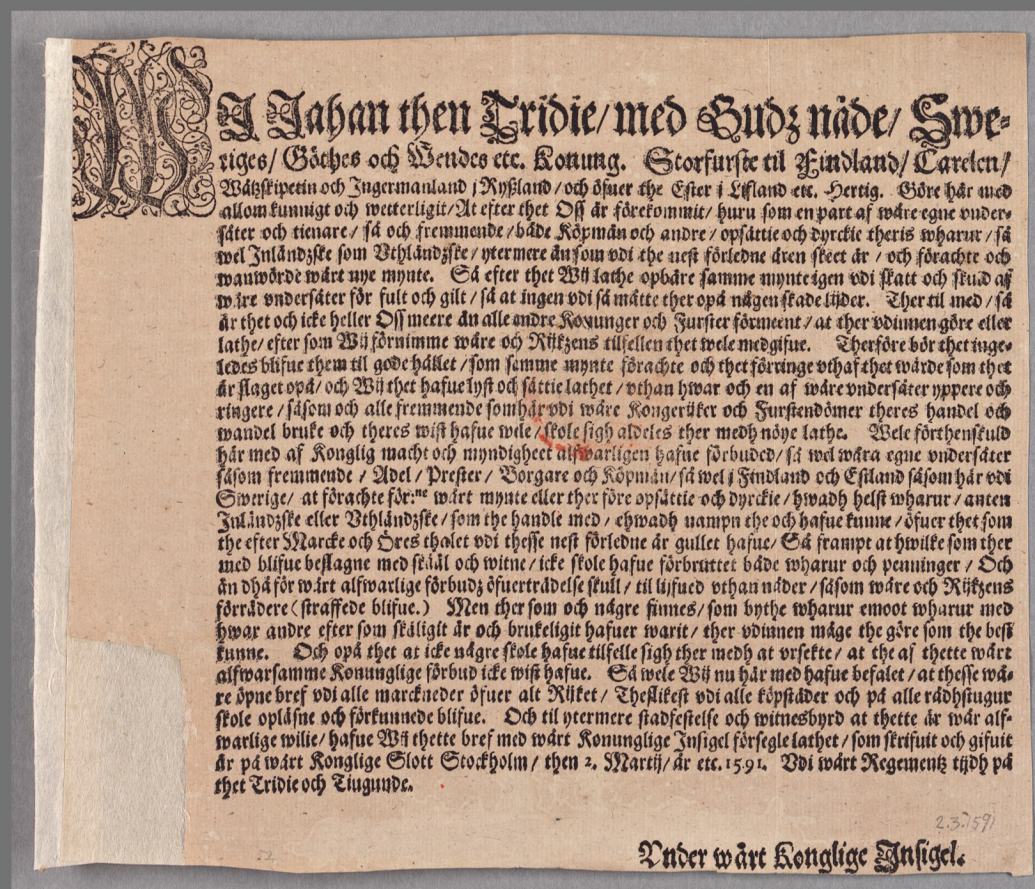 WJ Jahan then Tridie/ med Gudz nåde/ Swe-
riges/ Göthes och Wendes etc. Konung. Storfurste til Findland/ Carelen/
Wåtzskipetin och Ingermanland j Ryßland/ och öfuer the Ester i Lifland etc. Hertig. Göre här med
allom kunnigt och wetterligit/ At efter thet Oss är förekommit/ huru som en part af wåre egne vnder-
såter och tienare/ så och fremmende/ både Köpmän och andre/ opsättie och dyrckie theris wharur/ så
wel Inländzske som Vthländzske/ ytermere än som vdi the nest förledne åren skeet är/ och förachte och
wanwörde wårt nye mynte. Så efter thet Wij lathe opbäre samme mynte igen vdi skatt och skuld af
wåre vndersåter för fult och gilt/ så at ingen vdi så måtte ther opå någen skade lijder. Ther til med/ så
är thet och icke heller Oss meere än alle andre Konunger och Furster förment/ at ther vdinnen göre eller
lathe/ efter som Wij förnimme wåre och Rijkzens tilfellen thet wele medgifue. Therföre bör thet inge-
ledes blifue them til gode hållet/ som samme mynte förachte och thet förringe vthaf thet wärde som thet
är slaget opå/ och Wij thet hafue lyst och sättie lathet/ vthan hwar och en af wåre vndersåter yppere och
ringere/ såsom och alle fremmende som här vdi wåre Kongerijker och Furstendömer theres handel och
wandel bruke och theres wist hafue wele/ skole sigh aldeles ther medh nöye lathe. Wele förthenskuld
här med af Konglig macht och myndigheet alfwarligen hafue förbuded/ så wel wåra egne vndersåter
såsom fremmende/ Adel/ Prester/ Borgare och Köpmän/ så wel j Findland och Estland såsom här vdi
Swerige/ at förachte för:ne wårt mynte eller ther före opsättie och dyrckie/ hwadh helst wharur/ anten
Inländzske eller Vthländzske/ som the handle med/ ehwadh nampn the och hafue kunne/ öfuer thet som
the efter Marcke och Öres thalet vdi thesse nest förledne år gullet hafue/ Så frampt at hwilke som ther
med blifue beslagne med skääl och witne/ icke skole hafue förbruttet både wharur och penninger/ Och
än dhå för wårt alfwarlige förbudz öfuerträdelse skull/ til lijfued vthan nåder/ såsom wåre och Rijkzens
förrädere (straffede blifue.) Men ther som och någre finnes/ som bythe wharur emoot wharur med
hwar andre efter som skäligit är och brukeligit hafuer warit/ ther vdinnen måge the göre som the best
kunne. Och opå thet at icke någre skole hafue tilfelle sigh ther medh at vrsekte/ at the af thette wårt
alfwarsamme Konunglige förbud icke wist hafue. Så wele Wij nu här med hafue befalet/ at thesse wå-
re öpne bref vdi alle marckneder öfuer alt Rijket/ Theslikest vdi alle köpstäder och på alle rådhstugur
skole opläsne och förkunnede blifue. Och til ytermere stadfestelse och witnesbyrd at thette är wår alf-
warlige wilie/ hafue Wij thette bref med wårt Konunglige Insigel försegle lathet/ som skrifuit och gifuit
är på wårt Konglige Slott Stockholm/ then 2. Martij/ år etc. 1591. Vdi wårt Regementz tijdh på
thet Tridie och Tiugunde.
2.3.1591
Vnder wårt Konglige Insigel.